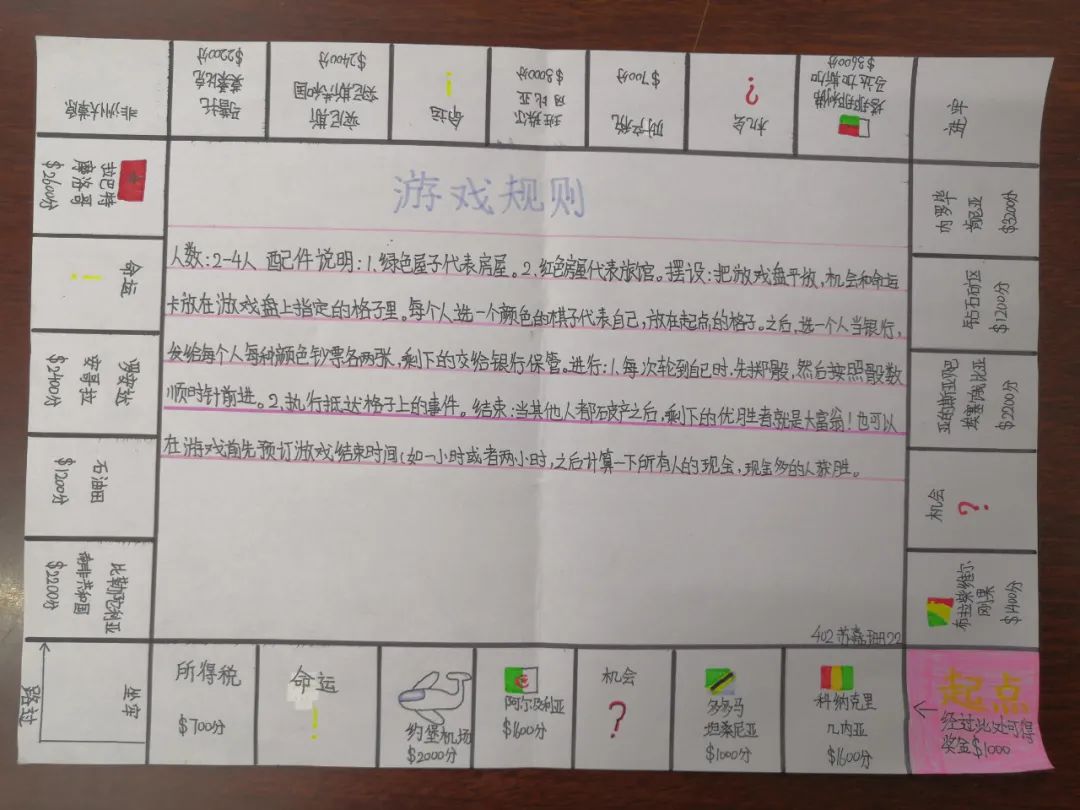 游戏规则
人数:2-4人 配件说明:1.绿色屋子代表房屋。2.红色房屋代表旅馆。摆设:把游戏盘平放,机会和命运
卡放在游戏盘上指定的格子里。每个人选一个颜色的棋子代表自己,放在起点的格子。之后,选一个人当银行,
发给每个人每种颜色钞票各两张,剩下的交给银行保管。进行:1.每次轮到自己时,先掷骰,然后按照骰数
顺时针前进。2.执行抵达格子上的事件。结束:当其他人都破产之后,剩下的优胜者就是大富翁!也可以
在游戏首先预订游戏结束时间(如一小时或者两小时,之后计算一下所有人的现金,现金多的人获胜。
402苏嘉珊22
起点
经过此处可得
奖金$1000
科纳克里
几内亚
$1600分
多多马
坦桑尼亚
$1000分
机会
?
阿尔及利亚
$1600分
约堡机场
$2000分
命运
!
所得税
$700分
坐牢
路过
比勒陀利亚
南非共和国
$2200分
石油田
$1200分
罗安达
安哥拉
$2400分
命运
!
拉巴特
摩洛哥
$2600分
非洲大草原
马普托
莫桑比克
$2200分
突尼斯
突尼斯共和国
$2400分
命运
!
班珠尔
冈比亚
$3000分
财产税
$700分
机会
?
塔那那利佛
马达加斯加
$3600分
进牢
内罗毕
肯尼亚
$3200分
钻石矿区
$1200分
亚的斯亚贝巴
埃塞俄比亚
$2200分
机会
?
布拉柴维尔
刚果
$1400分